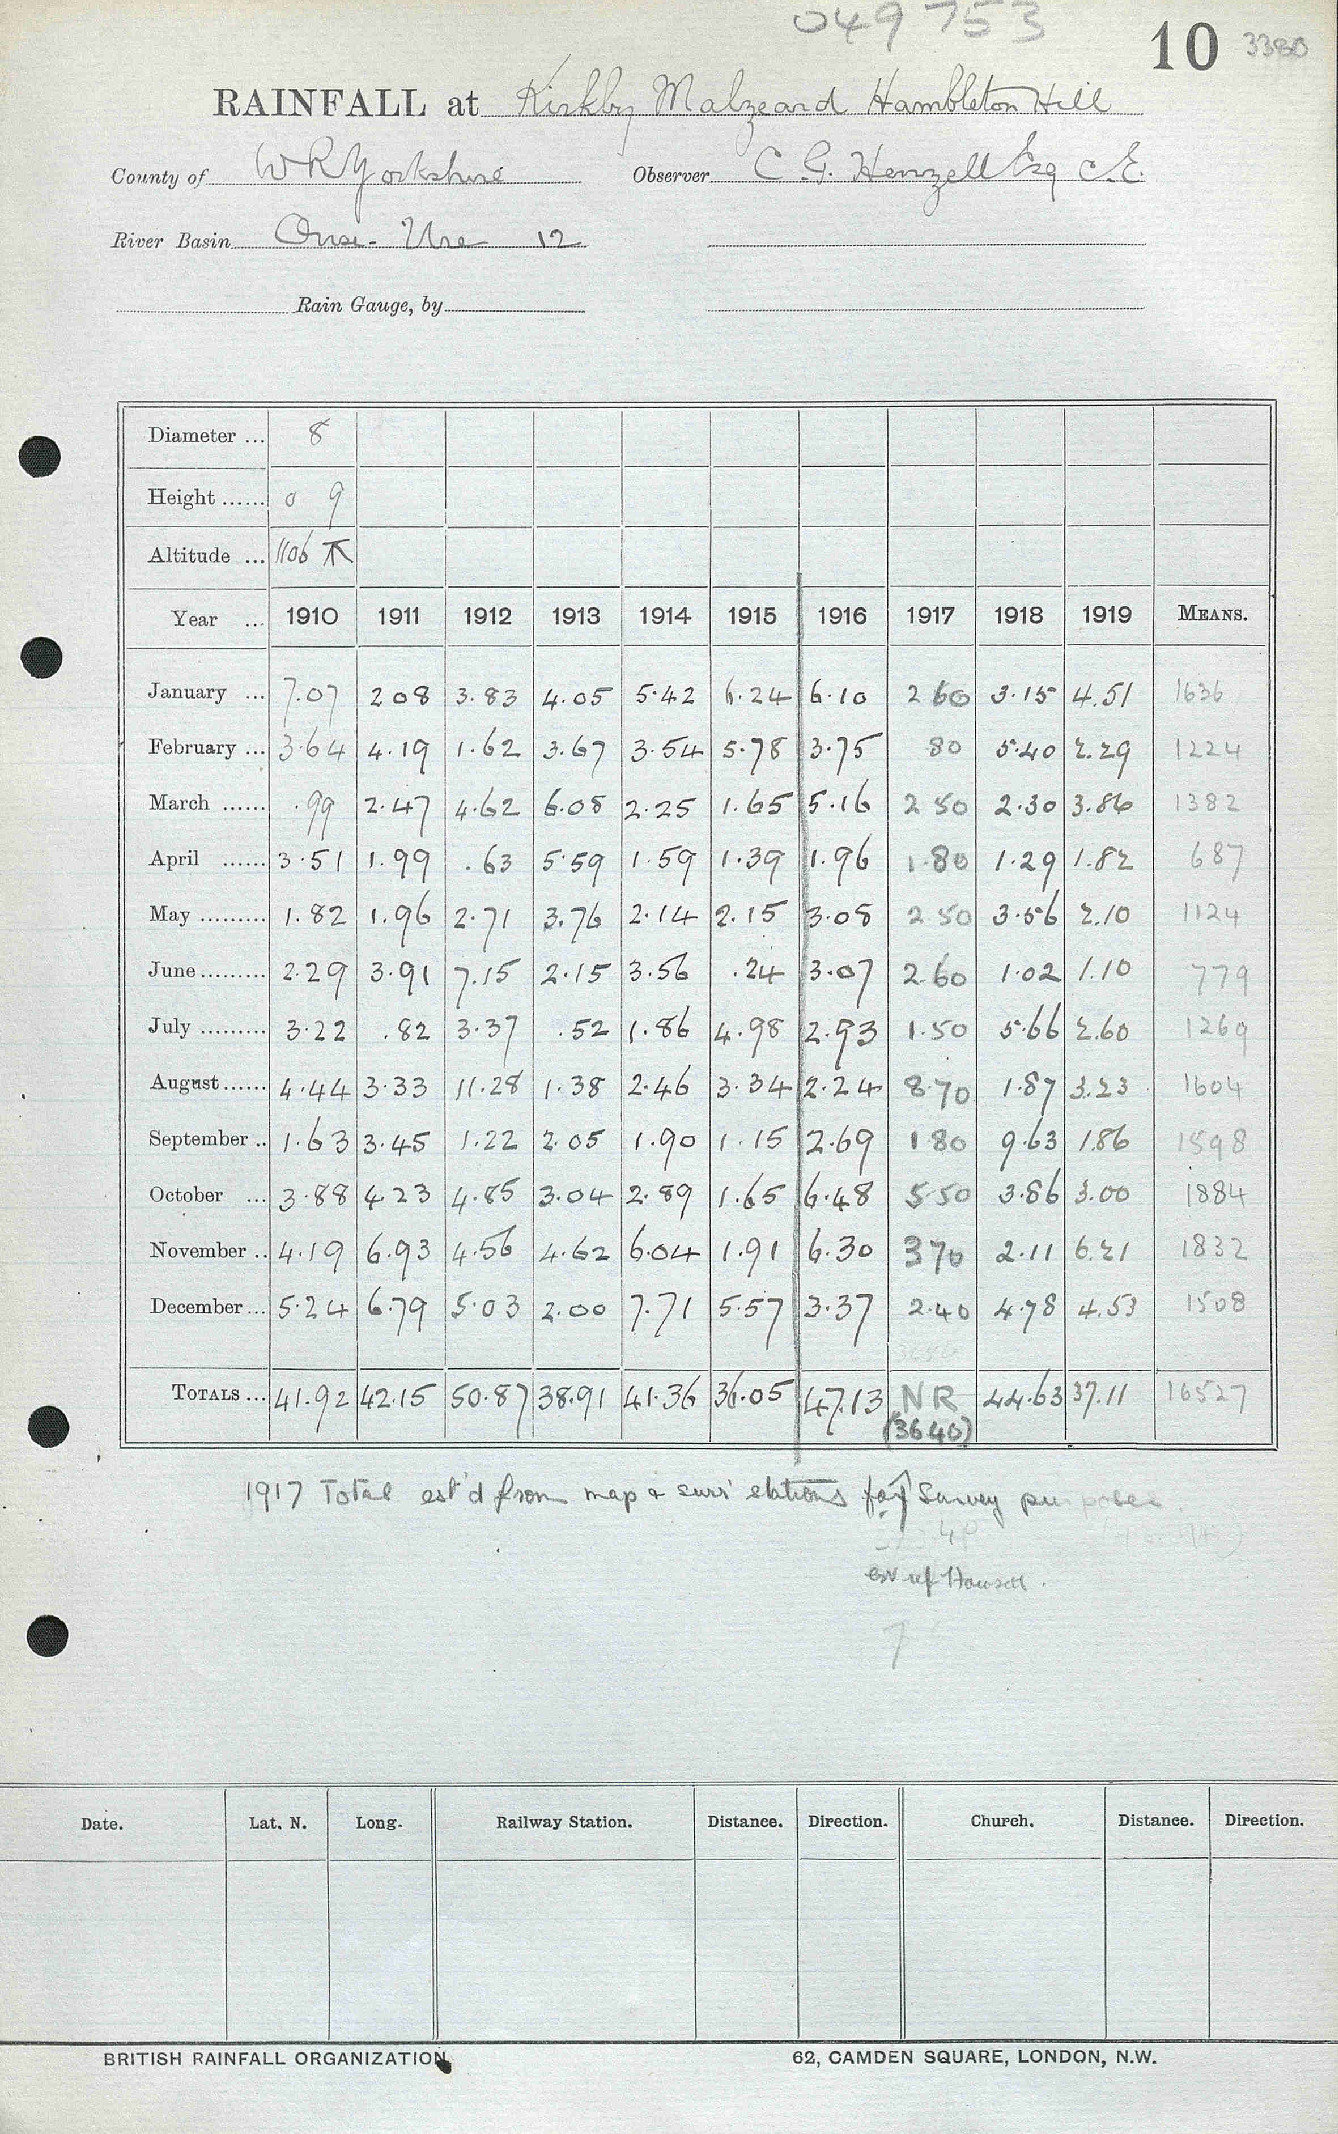 049753
10 3380
RAINFALL at Kirkby Malzeard Hambleton Hill
County of W R Yorkshire Observer C. G. Henzell Esq C.E.
River Basin Ouse - Ure 12
Rain Gauge, by
Diameter ... 8
Height ...... 0 9
Altitude ... 1106
Year ... 1910 1911 1912 1913 1914 1915 1916 1917 1918 1919 MEANS.
January ... 7.07 2 08 3.83 4.05 5.42 6.24 6.10 2 60 3.15 4.51 1636
February ... 3.64 4.19 1.62 3.67 3.54 5.78 3.75 80 5.40 2.29 1224
March ...... .99 2.47 4.62 6.08 2.25 1.65 5.16 2 50 2.30 3.86 1382
April ...... 3.51 1.99 .63 5.59 1.59 1.39 1.96 1.80 1.29 1.82 687
May ......... 1.82 1.96 2.71 3.76 2.14 2.15 3.08 2 50 3.56 2.10 1124
June ......... 2.29 3.91 7.15 2.15 3.56 .24 3.07 2.60 1.02 1.10 779
July ......... 3.22 .82 3.37 .52 1.86 4.98 2.93 1.50 5.66 2.60 1269
August ...... 4.44 3.33 11.28 1.38 2.46 3.34 2.24 8.70 1.87 3.23 1604
September .. 1.63 3.45 1.22 2.05 1.90 1.15 2.69 1 80 9.63 1.86 1598
October ... 3.88 4 23 4.85 3.04 2.89 1.65 6.48 5.50 3.86 3.00 1884
November .. 4.19 6.93 4.56 4.62 6.04 1.91 6.30 3 70 2.11 6.21 1832
December ... 5.24 6.79 5.03 2.00 7.71 5.57 3.37 2.40 4.78 4.53 1508
TOTALS ... 41.92 42.15 50.87 38.91 41.36 36.05 47.13 NR 44.63 37.11 16527
(36 40)
1917 Total est'd from map & surr stations for Survey purposes
Date. Lat. N. Long. Railway Station. Distance. Direction. Church. Distance. Direction.
BRITISH RAINFALL ORGANIZATION 62, CAMDEN SQUARE, LONDON, N.W.